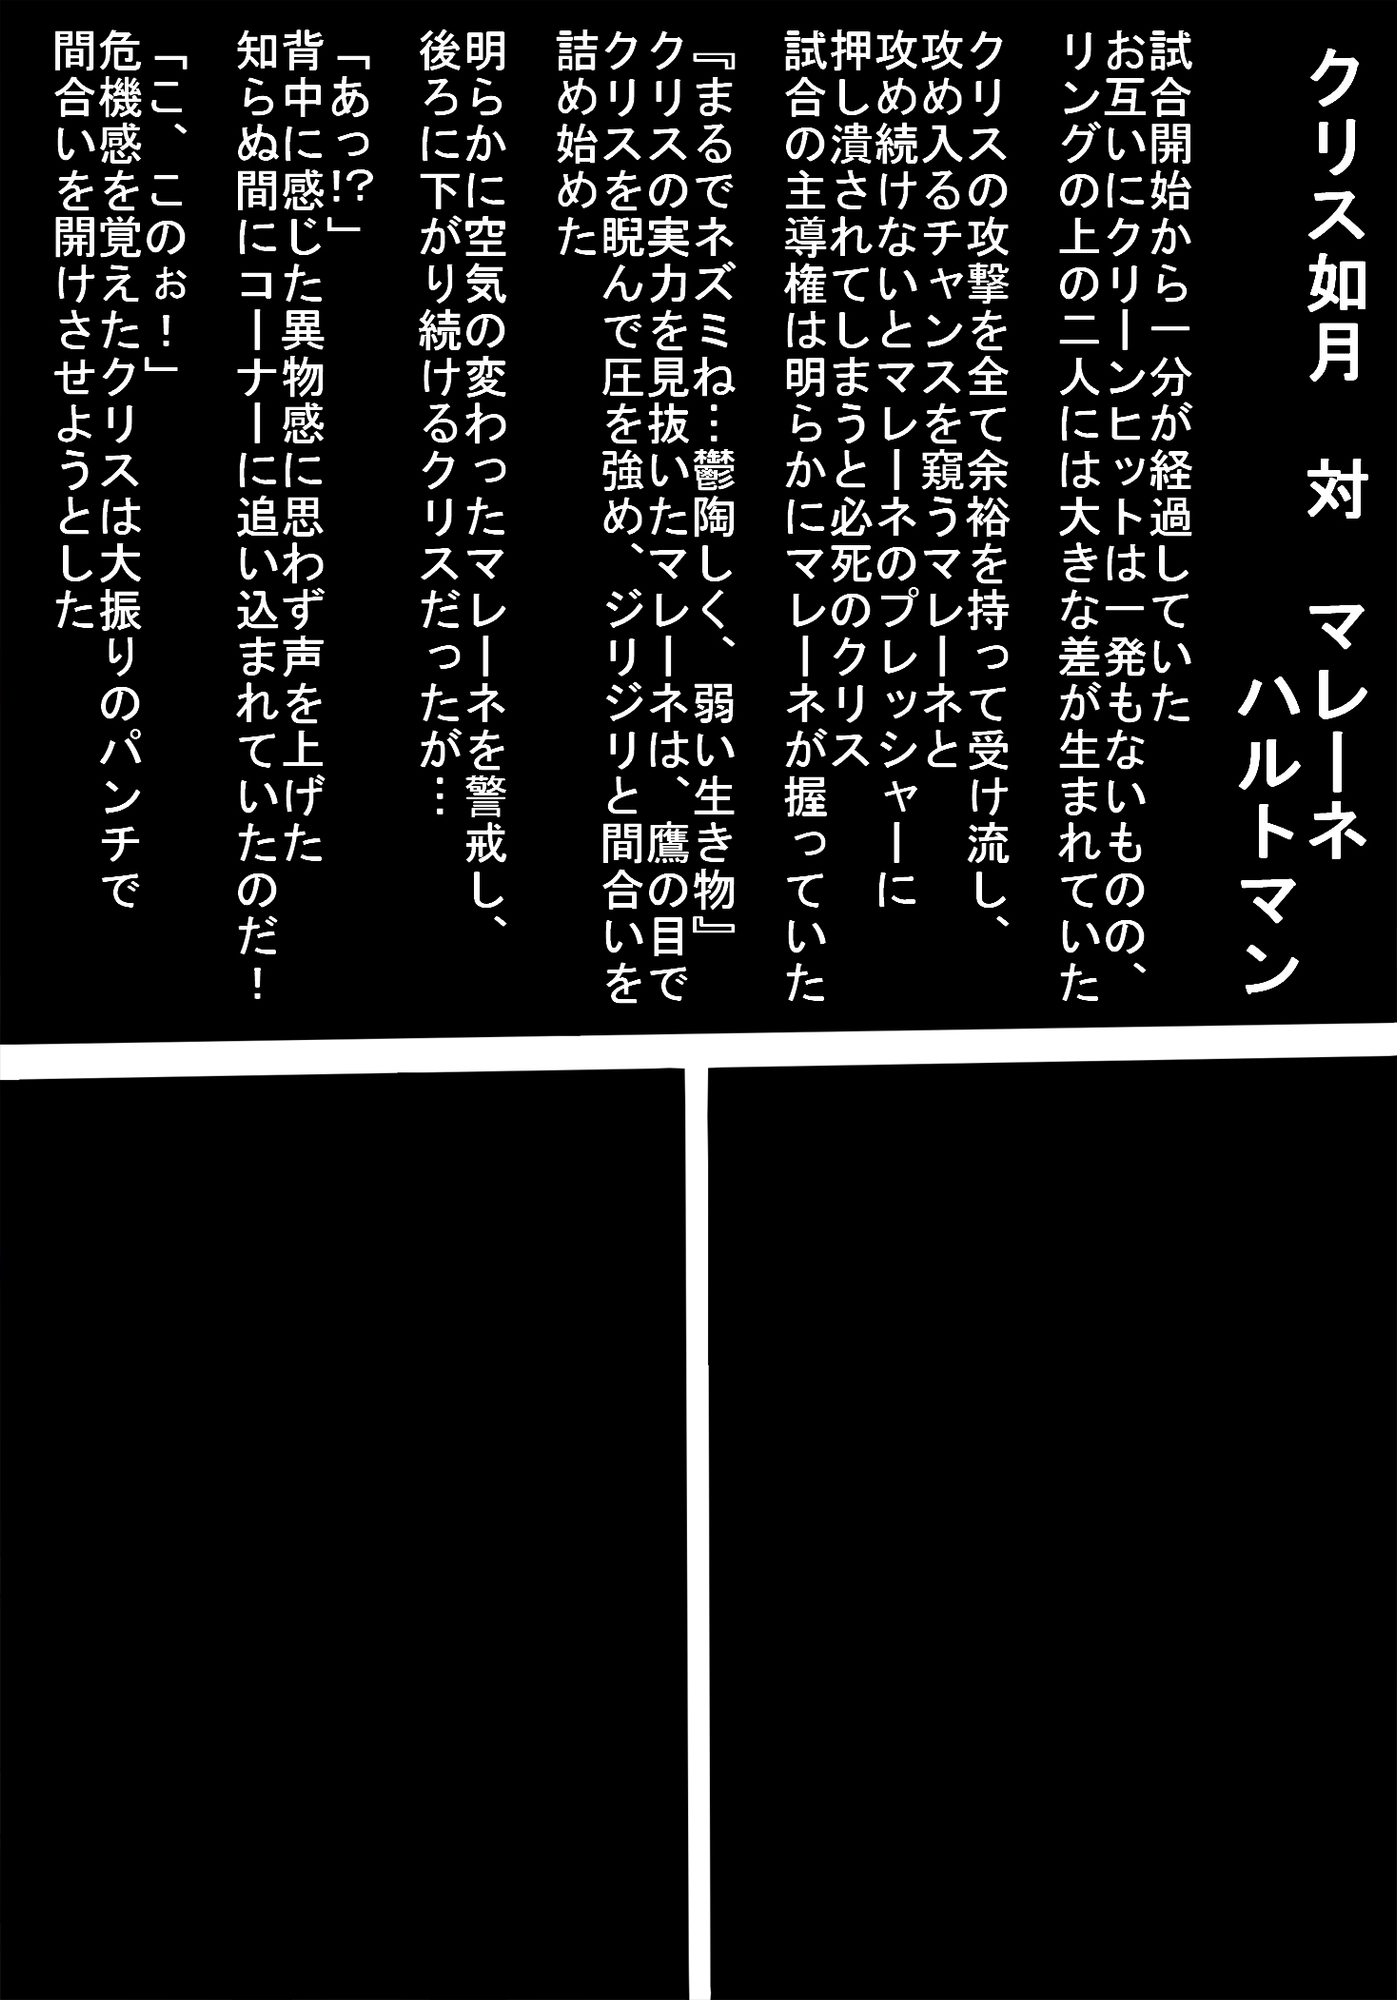 クリス如月　対　マレーネ
ハルトマン
試合開始から一分が経過していた
お互いにクリーンヒットは一発もないものの、
リングの上の二人には大きな差が生まれていた
クリスの攻撃を全て余裕を持って受け流し、
攻め入るチャンスを窺うマレーネと
攻め続けないとマレーネのプレッシャーに
押し潰されてしまうと必死のクリス
試合の主導権は明らかにマレーネが握っていた
『まるでネズミね…鬱陶しく、弱い生き物』
クリスの実力を見抜いたマレーネは、鷹の目で
クリスを睨んで圧を強め、ジリジリと間合いを
詰め始めた
明らかに空気の変わったマレーネを警戒し、
後ろに下がり続けるクリスだったが…
「あっ!?」
背中に感じた異物感に思わず声を上げた
知らぬ間にコーナーに追い込まれていたのだ！
「こ、このぉ！」
危機感を覚えたクリスは大振りのパンチで
間合いを開けさせようとした